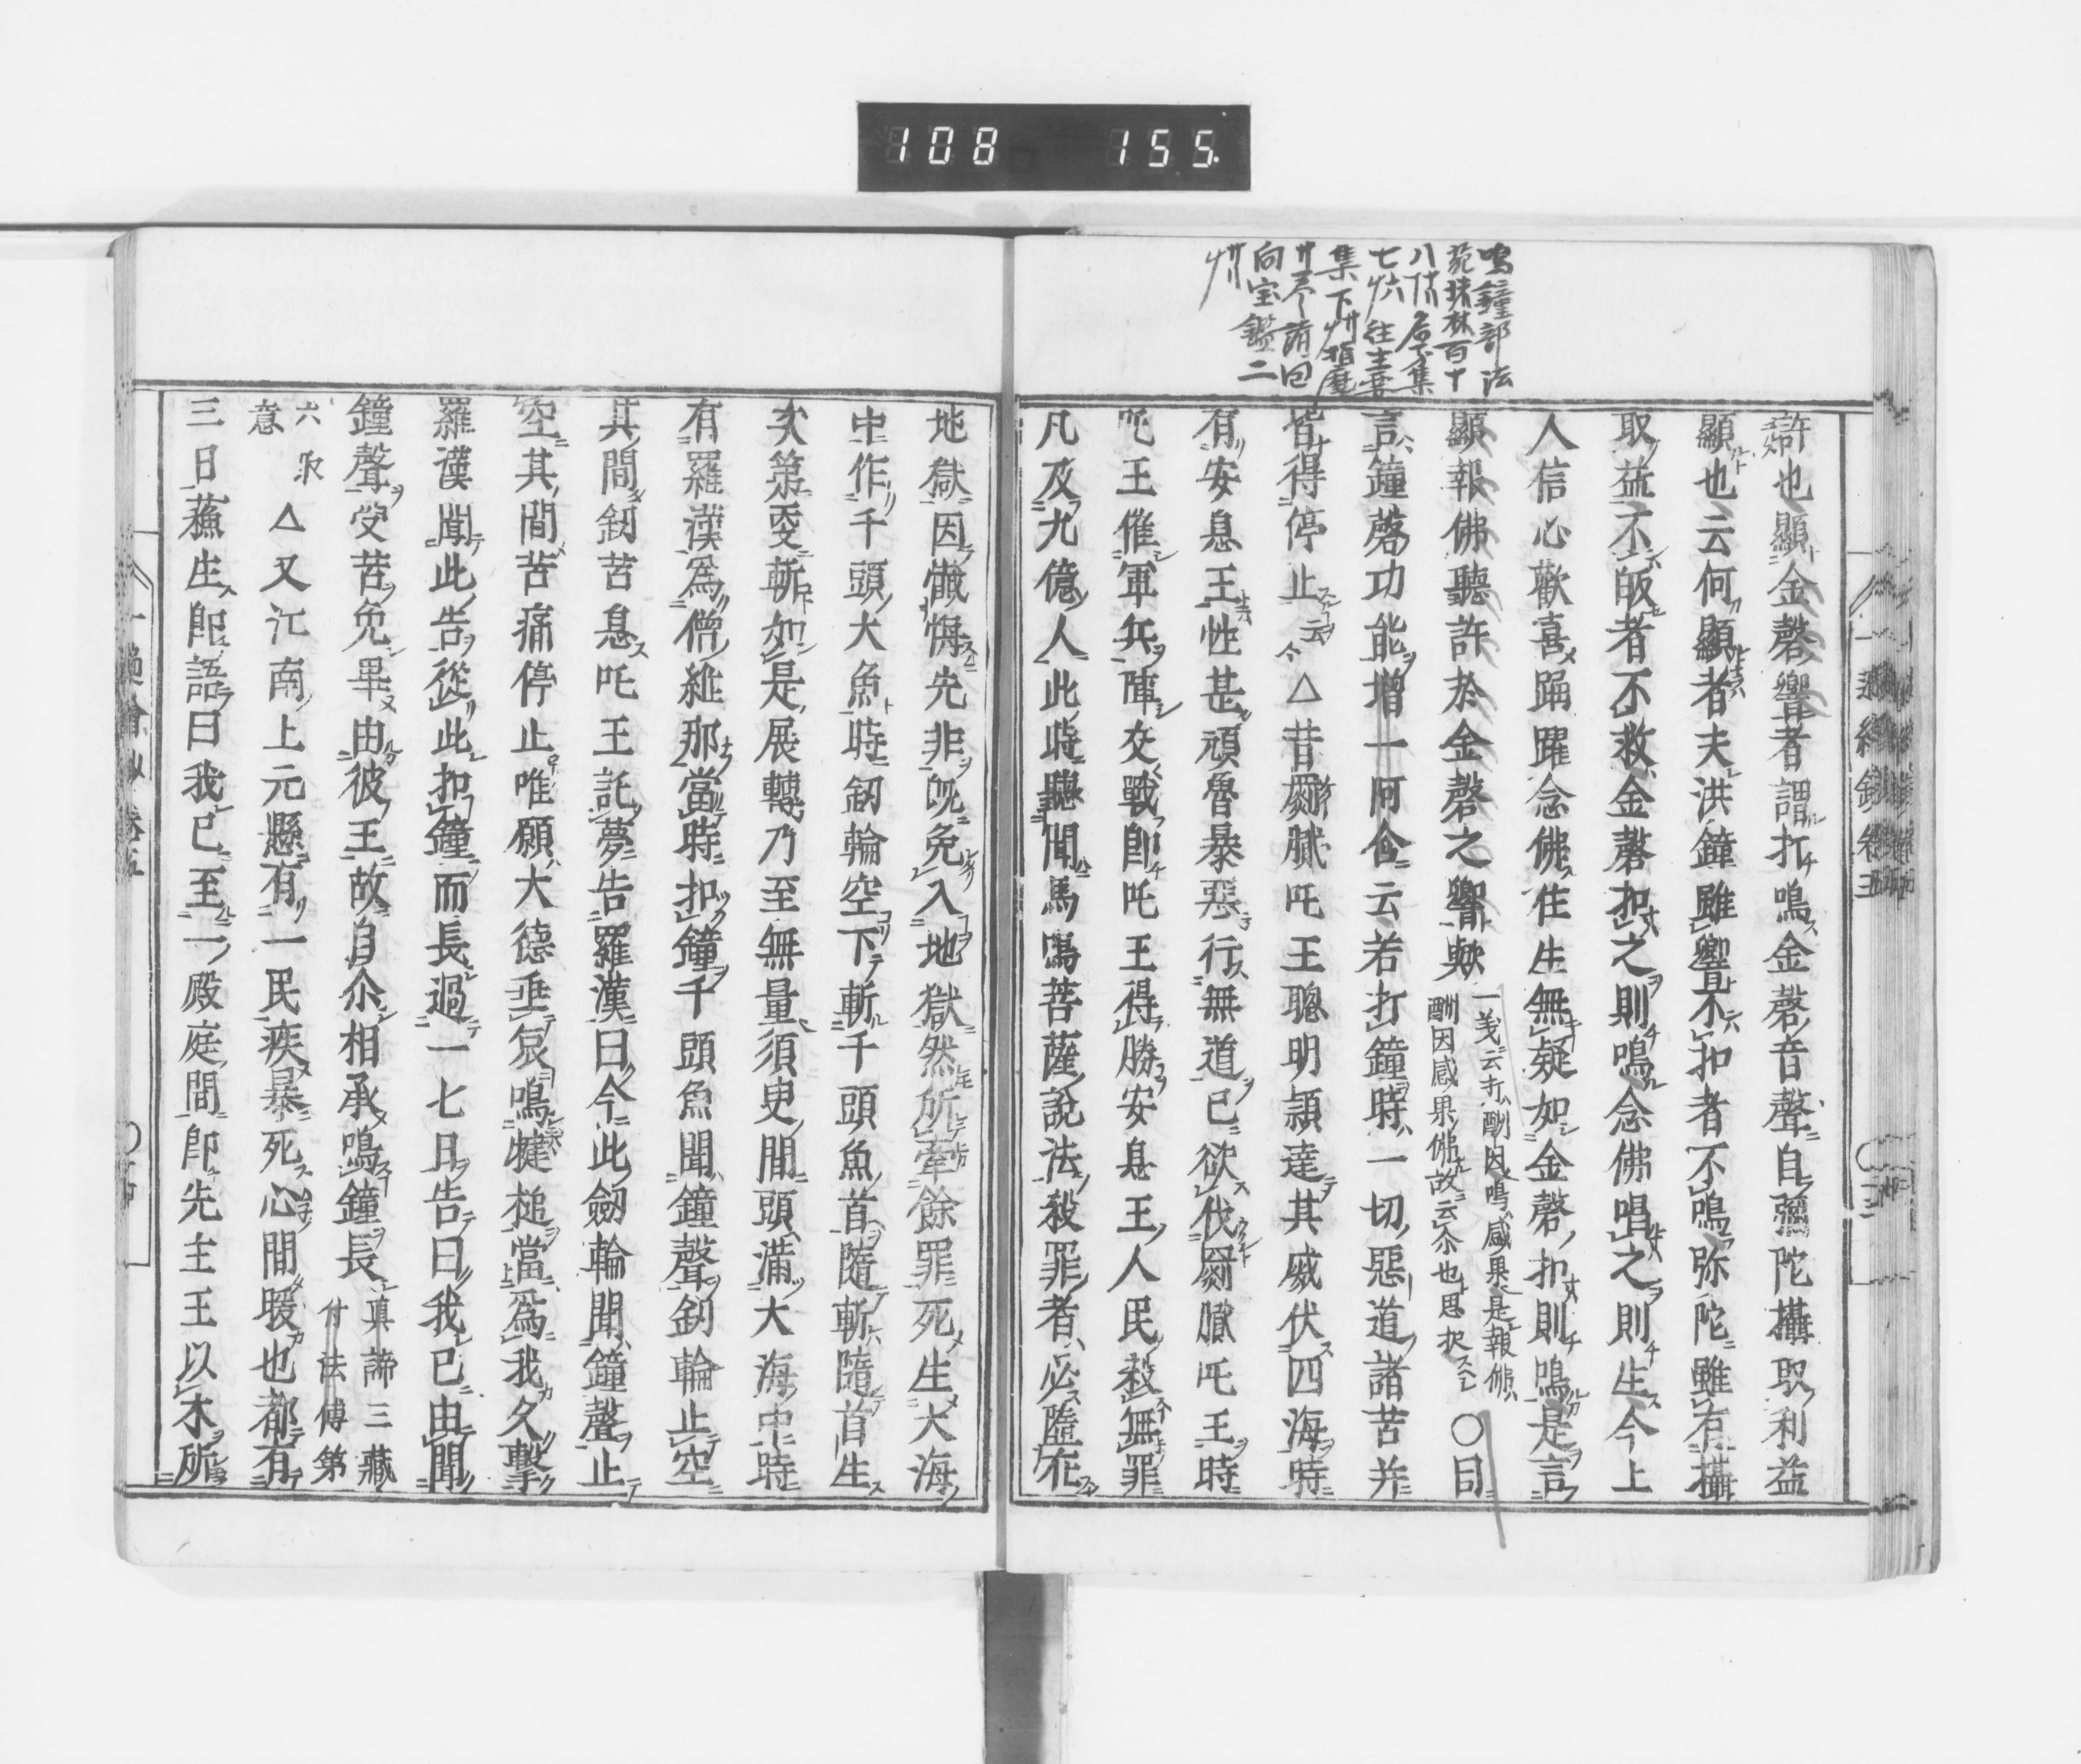 108 155.
鳴鐘部法
苑珠林百十
向宝鑑二
許也顯金磬響者謂打鳴金磬音聲自彌陀攝取利益
顯也云何顯者夫洪鐘雖響不扣者不鳴弥陀雖有攝
取益不皈者不救金磬扣之則鳴念佛唱之則生今上
人信心歡喜踊躍念佛徃生無疑如金磬扣則鳴是言
顯報佛聽許於金磬之響歟
一義云打酬因鳴感果是報佛
酬因感果佛故云尒也思択
〇目
言鐘磬功能增一阿含云若打鐘時一切惡道諸苦并
皆得停止云々△昔罽膩吒王聰明頴達其威伏四海時
有安息王性甚頑魯暴惡行無道已欲伐罽膩吒王時
吒王催軍兵陣交戰即吒王得勝安息王人民殺無罪
凡及九億人此時聽聞馬鳴菩薩說法殺罪者必墮在
地獄因懺悔先非既免入地獄然所牽餘罪死生大海
中作千頭大魚時釼輪空下斬千頭魚首隨斬隨首生
次第更斬如是展轉乃至無量須臾間頭滿大海中時
有羅漢爲僧維那當時扣鐘千頭魚聞鐘聲釼輪止空
其間釼苦息吒王託夢告羅漢曰今此劔輪聞鐘聲止
空其間苦痛停止唯願大德垂哀鳴犍槌當爲我久擊
羅漢聞此告從此扣鐘而長過一七日告曰我已由聞
鐘聲受苦免畢由彼王故自尒相承鳴鐘長
真諦三藏
付法傳第
六取
意
△又江南上元縣有一民疾暴死心間暖也都有
三日蘓生即語曰我已至一殿庭間即先主王以木所